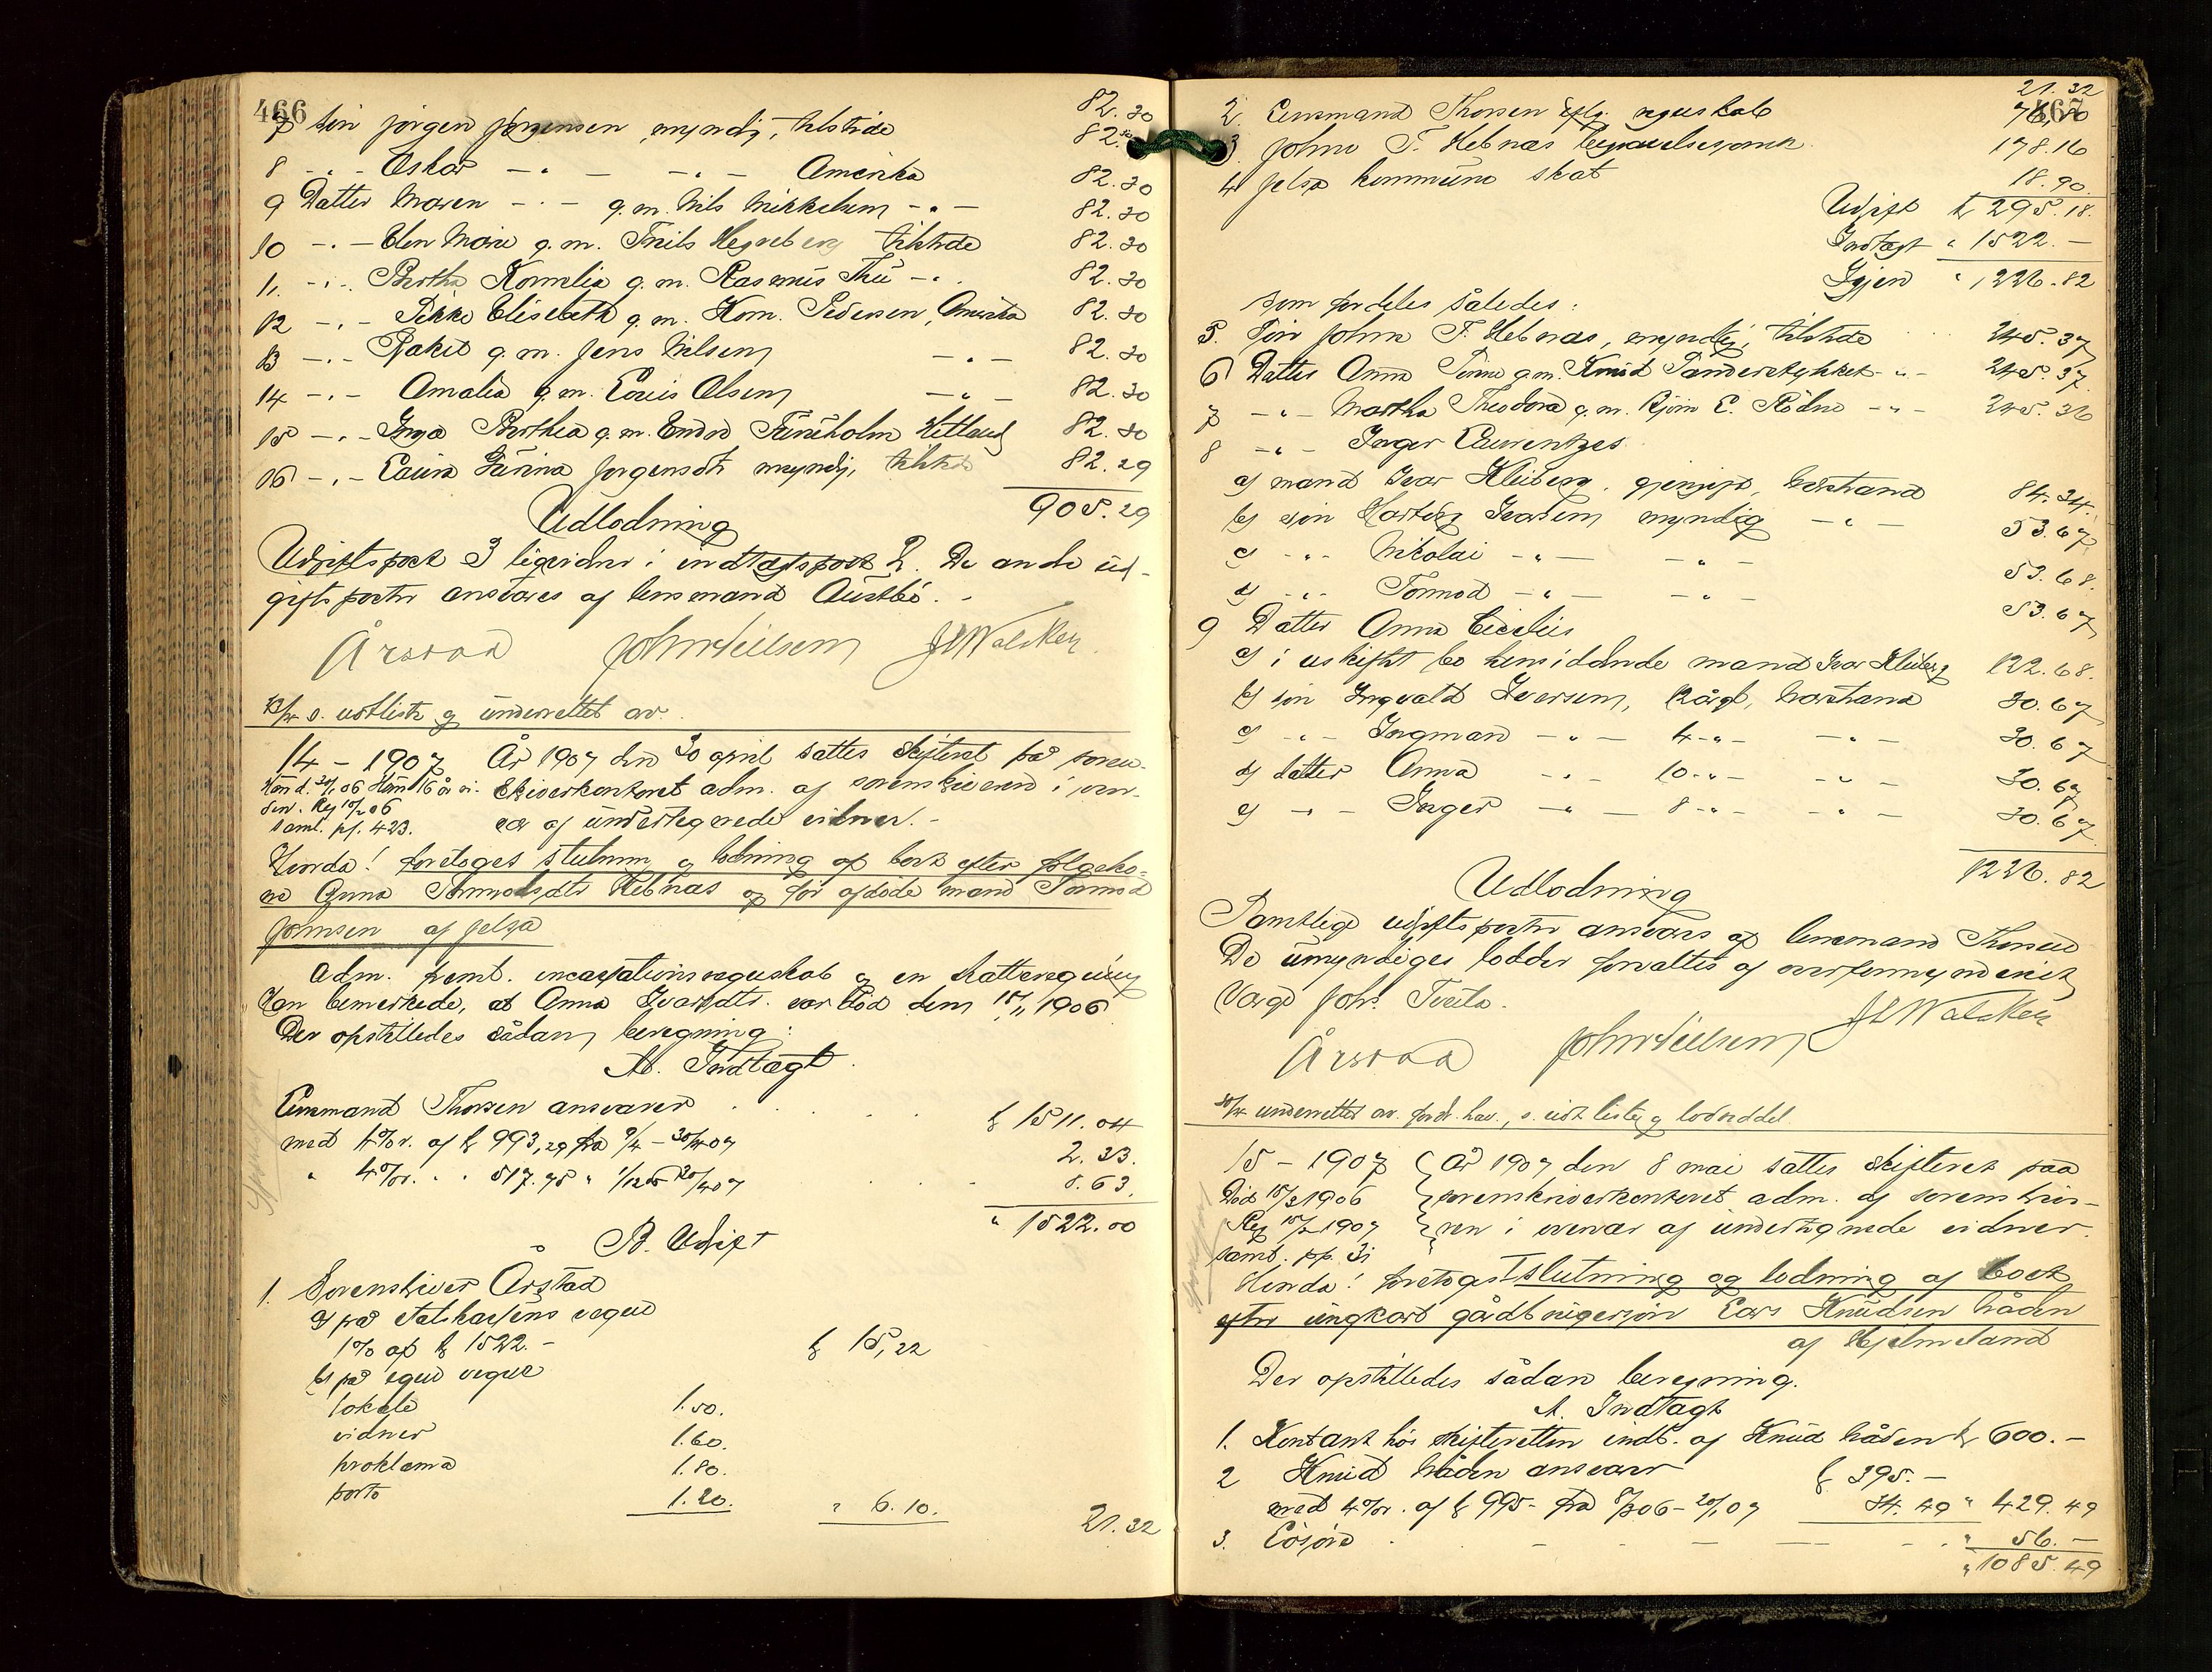 466
82.30
7 sön Jörgen Jörgensen, myndig, tilstede 82.30
8 -"- Oskar -"- -"- Amerika 82.30
9 Datter Maren -"- g.m. Nils Mikkelsen -"- 82.30
10 -"- Elen Marie g.m. Træls Hegreberg tilstede 82.30
11. -"- Bertha Kornelia g.m. Rasmus Thu -"- 82.30
12 -"- Elisebeth g.m. Korn. Pedersen, Amerika 82.30
13 -"- Rakel g.m. Jens Nilsen -"- 82.30
14 -"- Amalia g.m. Louis Olsen -"- 82.30
15 -"- Inga Berthea g.m. Endre Hetland 82.30
16 -"- Laura Jorgensdtr myndig, tilstede 82.29
905.29
Udlodning
Udgiftspost 3 ligeridner i indtægtspost 2. De andre ud-
giftsposter ansvares af lensmand Austbö.
Årstad John Neilsen
s. utliste og underrettet av.
14 - 1907 År 1907 den 30 april sattes skifteret på soren-
skriverkontoret adm. af sorenskriveren i over-
vær af undertegnede vidner.
Saml. pr. 423.
Hvorda! foretoges slutning og lodning af boet efter følgeko-
ne Anna Tormodsdtr Hebnæs og før afdöde mand Tormod
Johnsen af Jelsa
Adm. freml. incassationsregnskab og en skatteregning
Han bemerkede, at Anna Ivarsdtr. var död den 15/11 1906
Der opstilledes sådan beregning:
A. Indtægt.
Lensmand Thorsen ansvarer k 1511.04
med 4% r. af k 993,29 fra 9/4 - 30/4 07 2.33.
" 4% r. " " 517.75 " 8.63.
" 1522.00
B. Udgift
1. Sorenskriver Årstad
a) på statskassens vegne
1% af k 1522.- k 15,22
b) på egne vegne
lokale 1.50.
vidner 1.60.
proklama 1.80.
porto 1.20. " 6.10. 21.32
467
21.32
2. Lensmand Thorsen iflg. regnskab 76,80
3. John T. Hebnæs begravelsesomk. 178.16
4 Jelsa kommune skat 18.90
Udgift k 295.18.
Indtægt " 1522.-
Igjen " 1226.82
som fordeles således:
5. Sön John T. Hebnæs, myndig, tilstede 245.37
6 Datter Anna g.m. Knud -"- 245.37.
7 -"- Martha Theodora g.m. Björn E. Rödne -"- 245.36
8 -"- Inger Laurentzes
a) mand Ivar Kleiberg, gjengift, 84.34.
b) sön Ivarsen myndig -"- 53.67
c) -"- Nikolai -"- -"- 53.68.
d) -"- Tormod -"- -"- 53.67
9 Datter Anna Cecelius
a) i uskiftet bo hensiddende mand Ivar Kleiberg 122.68.
b) sön Ingvald Iversen, 12 årgl., 30.67
c) -"- Ingman -"- 4 -"- -"- 30.67
d) datter Anna -"- 10 -"- -"- 30.67
e) -"- Inger -"- 8 -"- -"- 30.67
1226.82
Udlodning
Samtlige udgiftsposter ansvares af lensmand Thorsen
De umyndiges lodder forvaltes af overformynderiet
Verge Johs. Tveita.
Årstad John Neilsen
30/4 underrettet av. fordr. hav., s. utliste og lodseddel
15 - 1907 År 1907 den 8 mai sattes skifteret paa
Död 15/3 1906 sorenskriverkontoret adm. af sorenskri-
Reg 1907 ven i overvær af undertegnede vidner.
saml. pp. 31
Hvorda! foretoges slutning og lodning af boet
efter ungkarl gårdbrugersön Lars Knudsen Våden
af Hjelmeland
Der opstilledes sådan beregning.
A. Indtægt
1. Kontant hos skifteretten indb. af Knud Våden k 600.-
2 Knud Våden ansvarer k 395.-
med 4% r. af k 995- fra 34.49 " 429.49
3. Lösöre " 56.-
" 1085.49